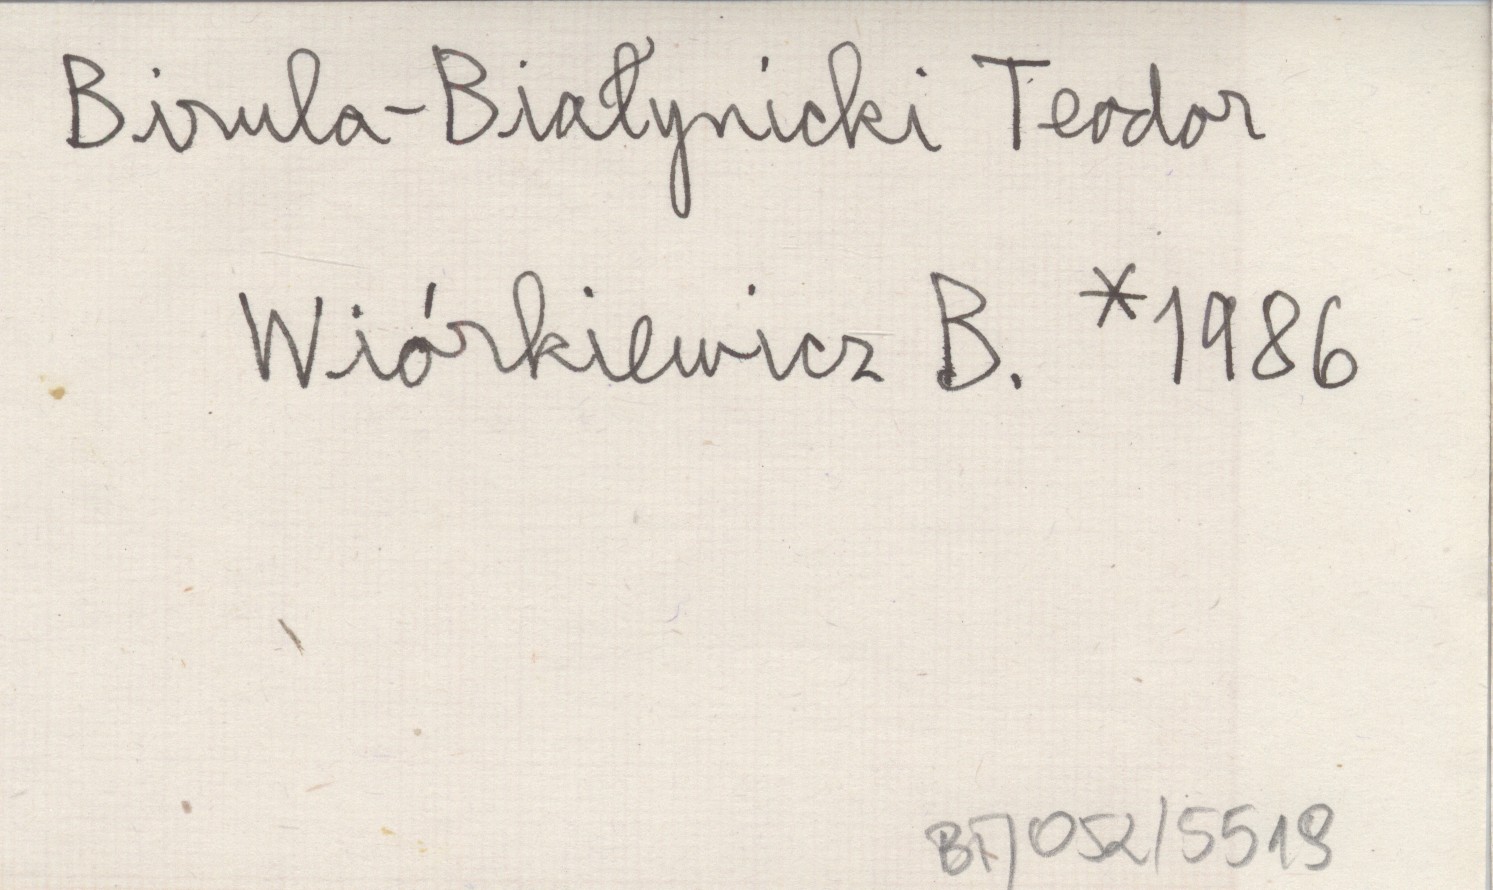 Birula-Białynicki Teodor
Wiórkiewicz B. *1986
BF/052/5519